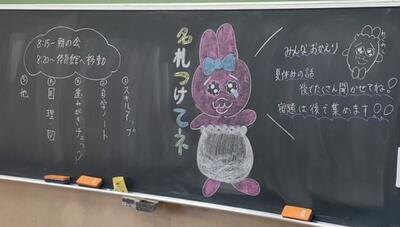 8:15〜 朝の会
8:20〜 体育館へ移動
①スキルアップ
②自学ノート
③歯みがきチェック
④図・理・図
⑤他
名札つけてネ
みんな おかえり
わくわく
夏休みの話
後でたくさん聞かせてね!
宿題は後で集めます